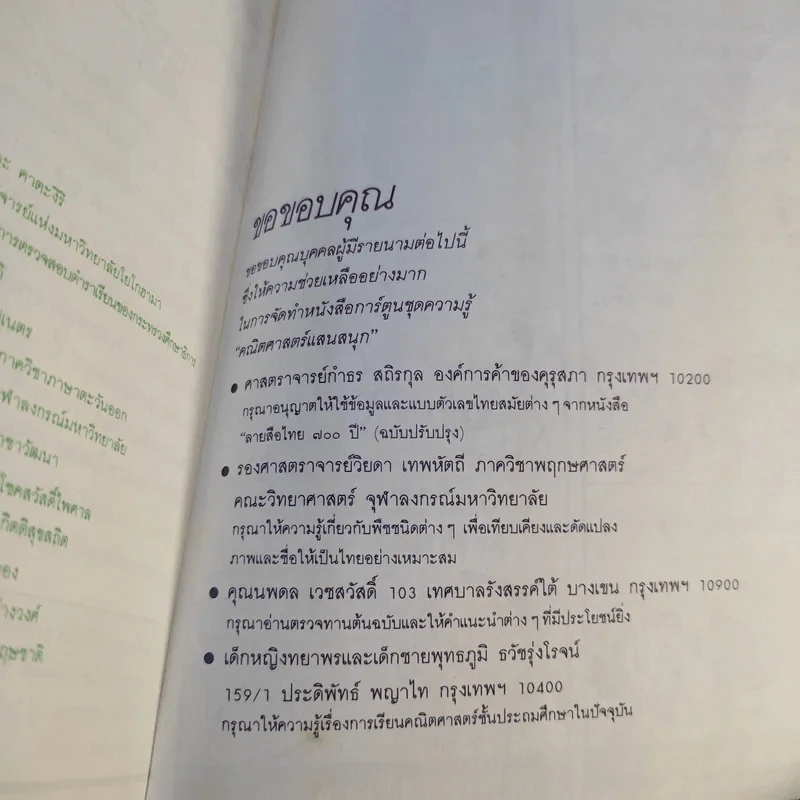 คาตะงิริ
จารย์แห่งมหาวิทยาลัยโยโกฮามา
การตรวจสอบตำราเรียนของกระทรวงศึกษาธิการ
เนตร
ภาควิชาภาษาตะวันออก
จุฬาลงกรณ์มหาวิทยาลัย
ชาวัฒนา
โชคสวัสดิ์ไพศาล
กิตติสุขสถิต
ทอง
างวงศ์
ฤษชาติ
ขอขอบคุณ
ขอขอบคุณบุคคลผู้มีรายนามต่อไปนี้
ซึ่งให้ความช่วยเหลืออย่างมาก
ในการจัดทำหนังสือการ์ตูนชุดความรู้
“คณิตศาสตร์แสนสนุก”
● ศาสตราจารย์กำธร สถิรกุล องค์การค้าของคุรุสภา กรุงเทพฯ 10200
กรุณาอนุญาตให้ใช้ข้อมูลและแบบตัวเลขไทยสมัยต่าง ๆ จากหนังสือ
“ลายสือไทย ๗๐๐ ปี” (ฉบับปรับปรุง)
● รองศาสตราจารย์วิยดา เทพหัตถี ภาควิชาพฤกษศาสตร์
คณะวิทยาศาสตร์ จุฬาลงกรณ์มหาวิทยาลัย
กรุณาให้ความรู้เกี่ยวกับพืชชนิดต่าง ๆ เพื่อเทียบเคียงและดัดแปลง
ภาพและชื่อให้เป็นไทยอย่างเหมาะสม
● คุณนพดล เวชสวัสดิ์ 103 เทศบาลรังสรรค์ใต้ บางเขน กรุงเทพฯ 10900
กรุณาอ่านตรวจทานต้นฉบับและให้คำแนะนำต่าง ๆ ที่มีประโยชน์ยิ่ง
● เด็กหญิงทยาพรและเด็กชายพุทธภูมิ ธวัชรุ่งโรจน์
159/1 ประดิพัทธ์ พญาไท กรุงเทพฯ 10400
กรุณาให้ความรู้เรื่องการเรียนคณิตศาสตร์ชั้นประถมศึกษาในปัจจุบัน